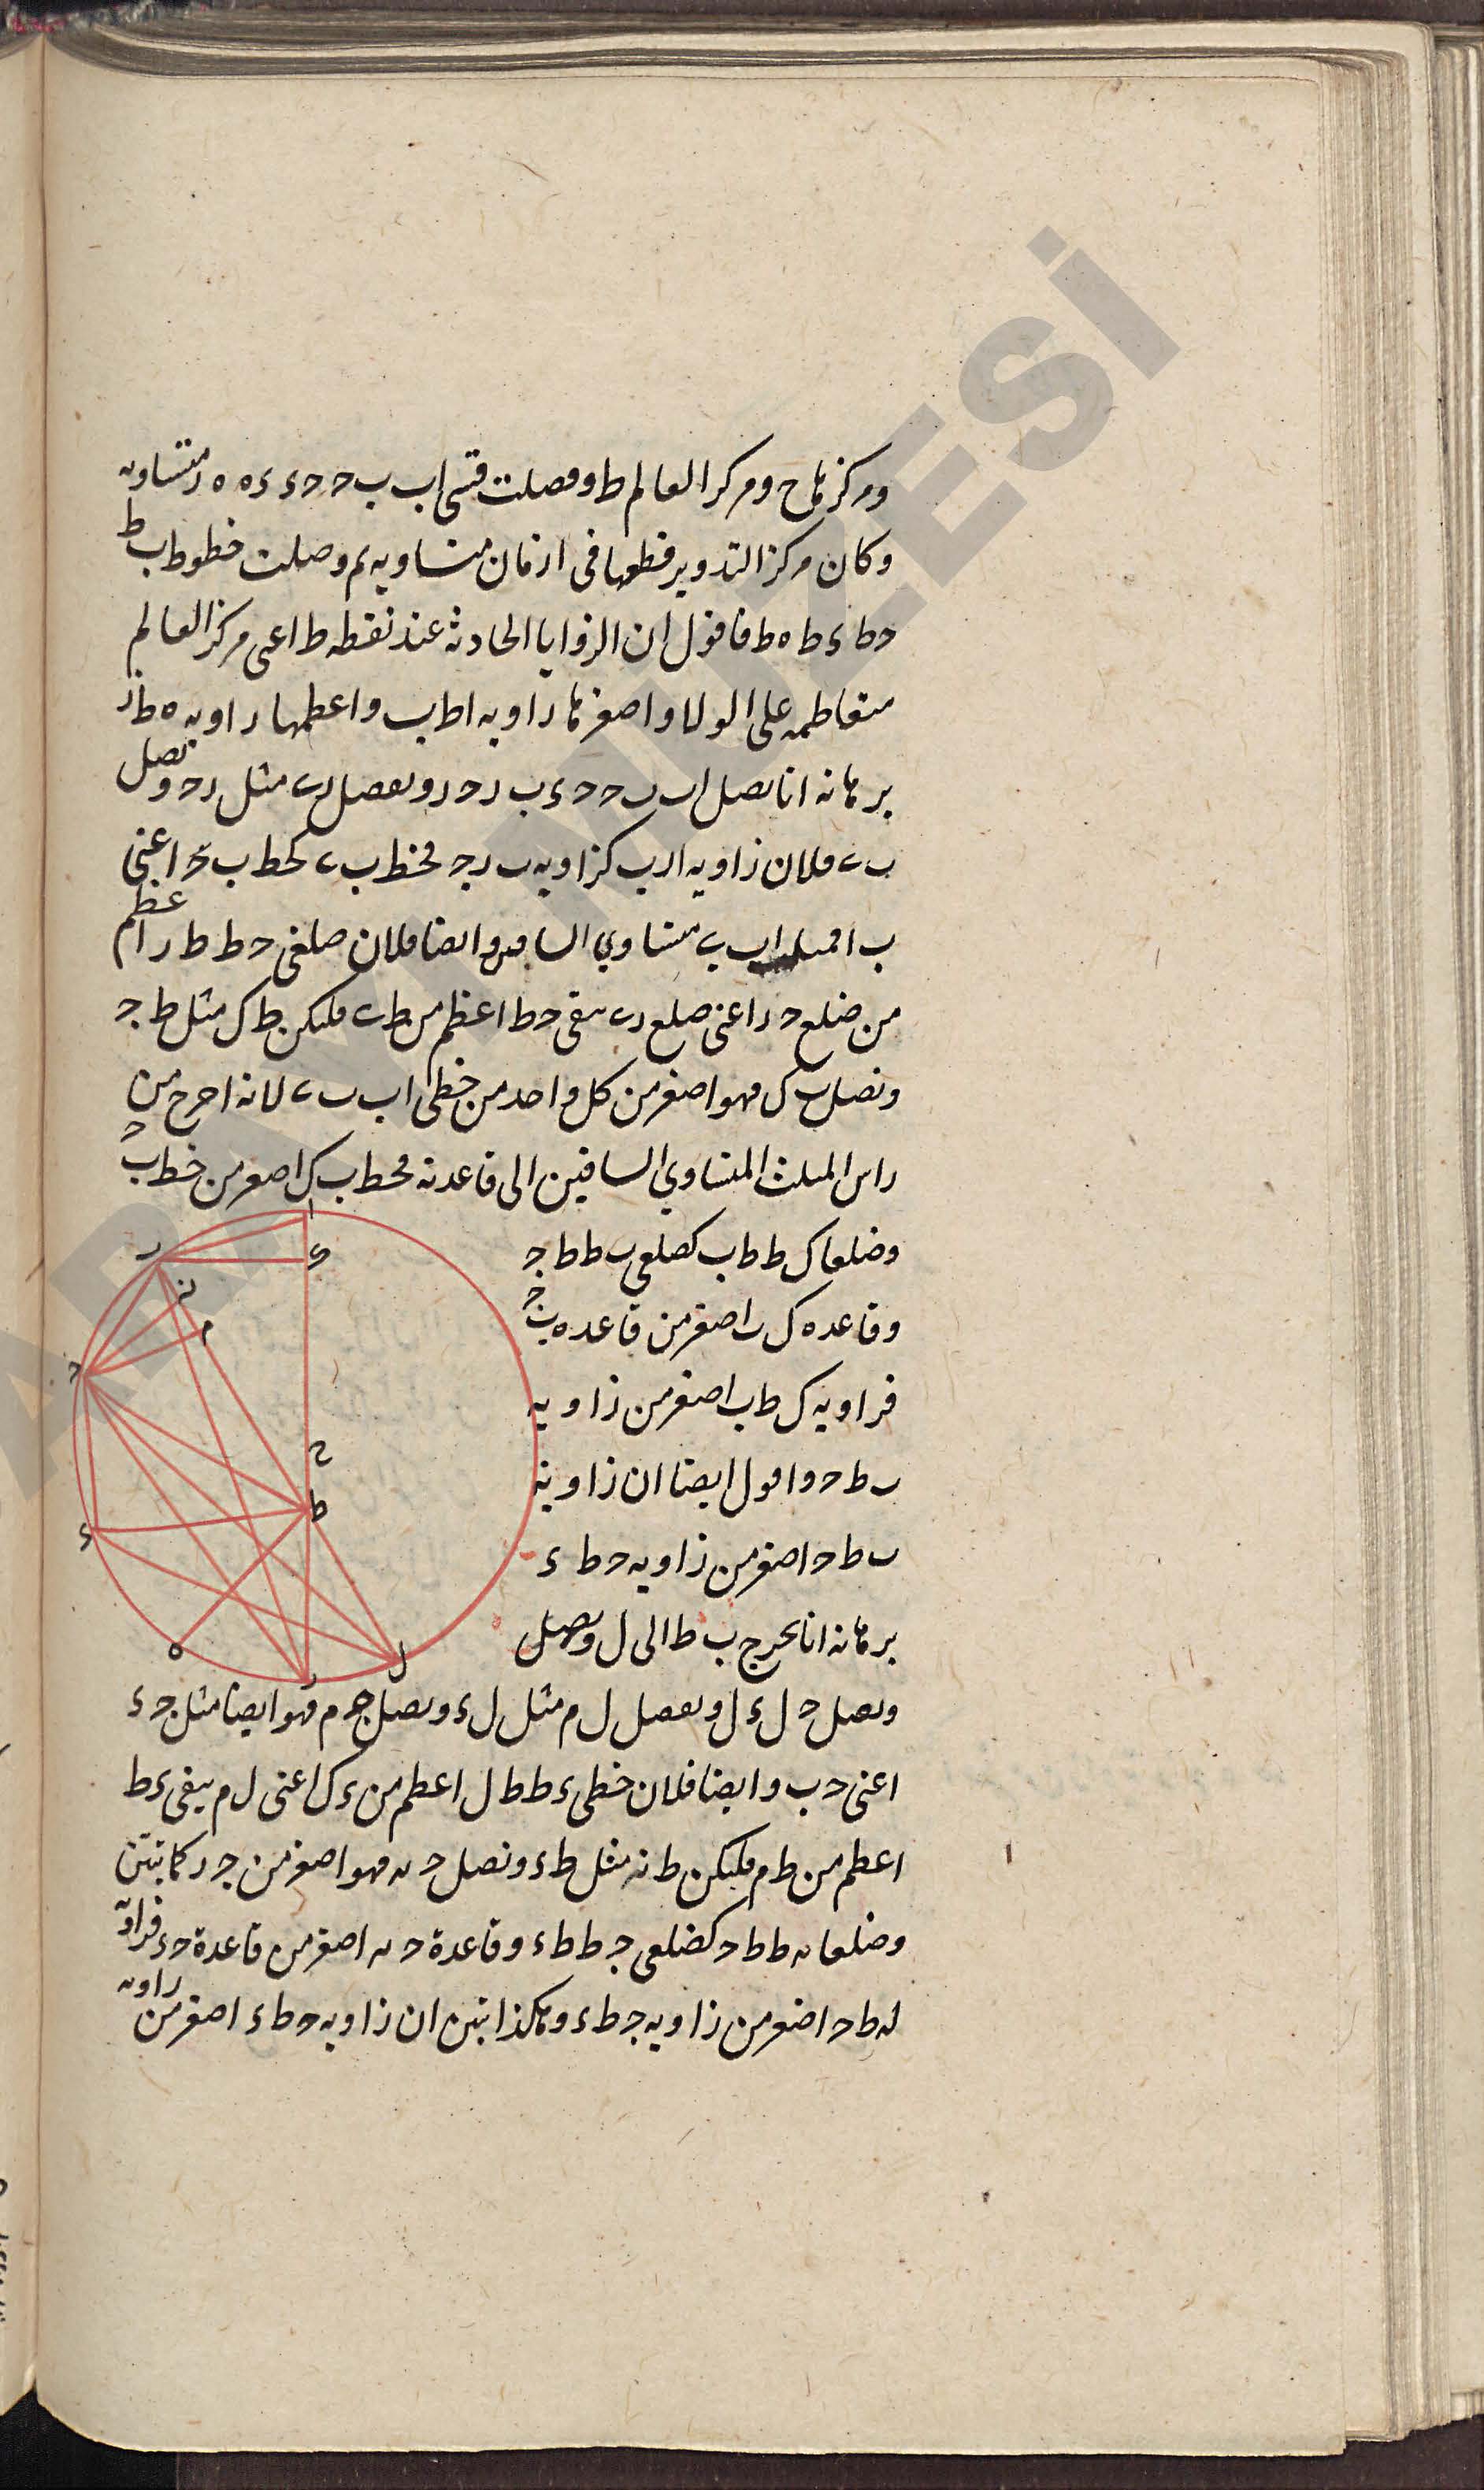 ومركزها ح ومركز العالم ط وفصلت قسى اب ب ح ح ء ء ه ه ر متساويه
وكان مركز التدوير قطعها فى ازمان متساويه ثم وصلت خطوط ب ط
ح ط ء ط ه ط فاقول ان الزوايا الحادثه عند نقطه ط اعنى مركز العالم
متعاظمه على الولا واصغرها زاويه اط ب واعظمها زاويه ه ط ر
برهانه انا نصل اب ب ح ح ء ب ر ح ر ونفصل رى مثل ر ح ونصل
ب ى فلان زاويه ا ر ب كزاويه ب ر ج فخط ب ى كخط ب ح اعنى
ب ا فمثلث اب ى متساوى الساقين وايضا فلان ضلعى ح ط ط ر اعظم
من ضلع ح ر اعنى ضلع رى يبقى ح ط اعظم من ط ى فليكن ط ك مثل ط ج
ونصل ب ك فهو اصغر من كل واحد من خطى اب ب ى لانه اخرج من
راس المثلث المتساوى الساقين الى قاعدته فخط ب ك اصغر من خط ب ح
وضلعا ك ط ط ب كضلعى ب ط ط ج
وقاعده ك ب اصغر من قاعده ب ج
فزاويه ك ط ب اصغر من زاويه
ب ط ح واقول ايضا ان زاويه
ب ط ح اصغر من زاويه ح ط ء
برهانه انا نخرج ب ط الى ل ونصل
ونصل ح ل ء ل ونفصل ل م مثل ل ء ونصل ج م فهو ايضا مثل ج ء
اعنى ح ب وايضا فلان خطى ء ط ط ل اعظم من ء ل اعنى ل م يبقى ء ط
اعظم من ط م فليكن ط ن مثل ط ء ونصل ح ن فهو اصغر من ج ر كما تبين
وضلعا ن ط ط ح كضلعى ج ط ط ء وقاعدة ح ن اصغر من قاعدة ح ء فزاوية
ن ط ح اصغر من زاويه ج ط ء وهكذا نبين ان زاويه ح ط ء اصغر من زاويه
ا
ى
ب
ن
م
ح
ح
ط
ء
ه
ر
ل
ARMA MÜZESİ